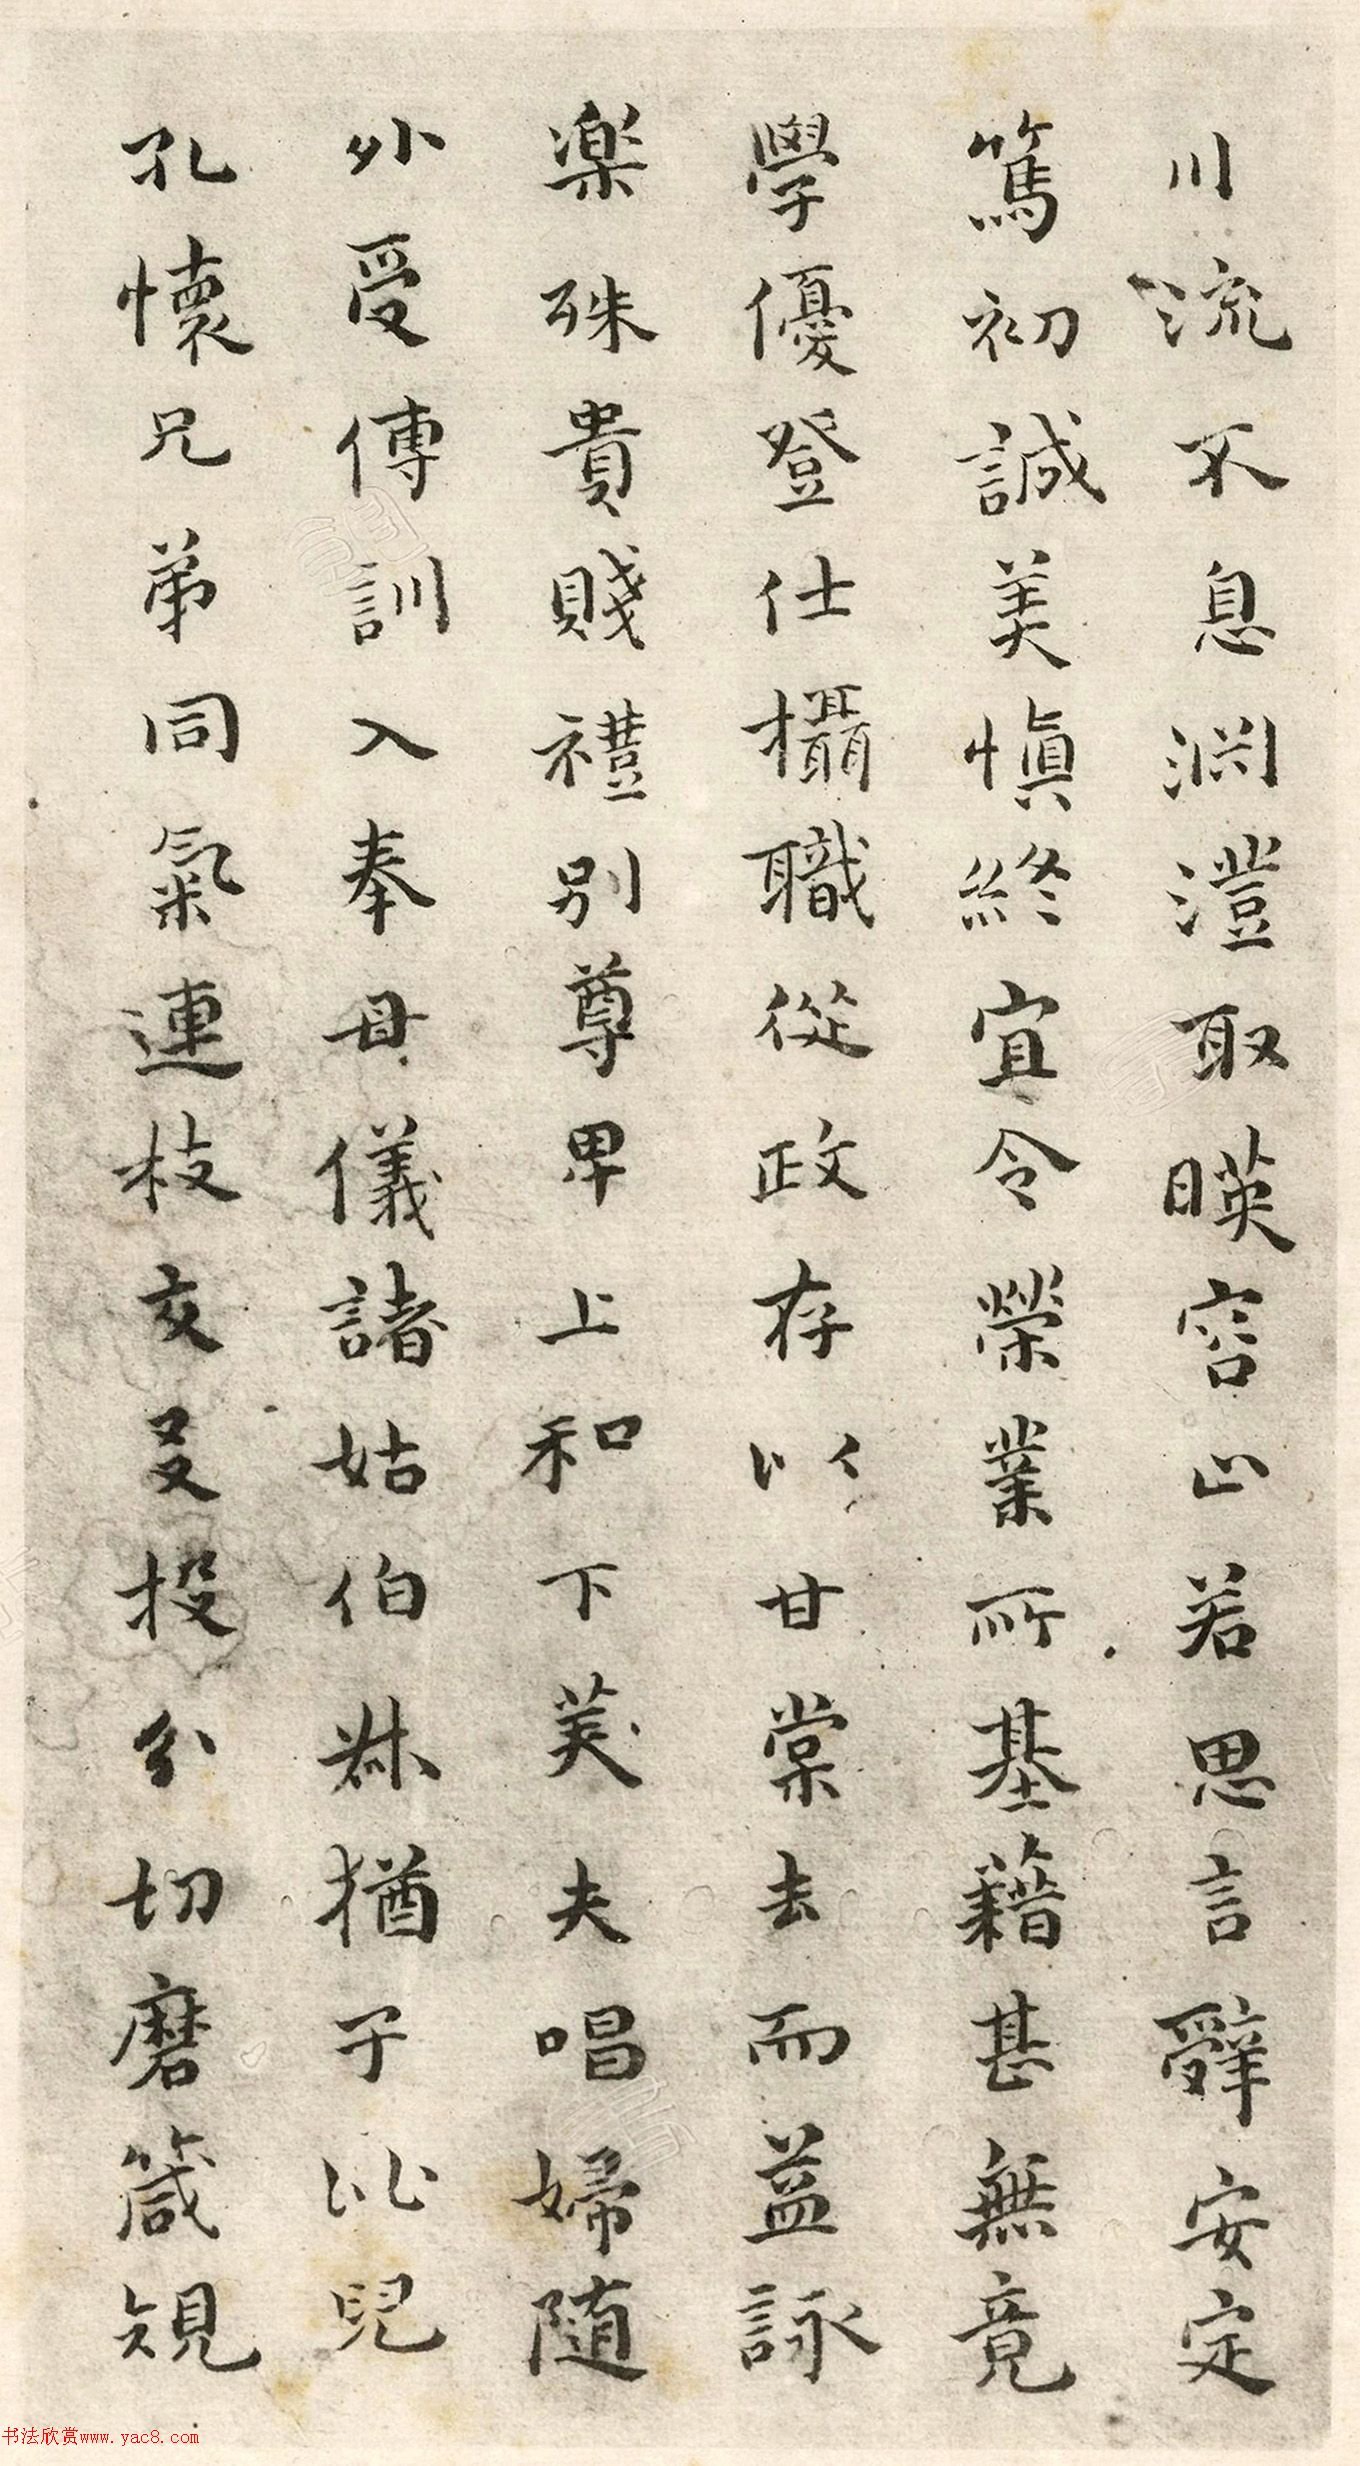 川流不息渊澄取暎容止若思言辭安定
篤初誠美慎終宜令榮業所基籍甚無竟
學優登仕攝職從政存以甘棠去而益詠
楽殊貴賤禮別尊卑上和下美夫唱婦随
外受傅訓入奉母儀諸姑伯叔猶子比兒
孔懷兄弟同氣連枝交友投分切磨箴規
书法欣赏www.yac8.com